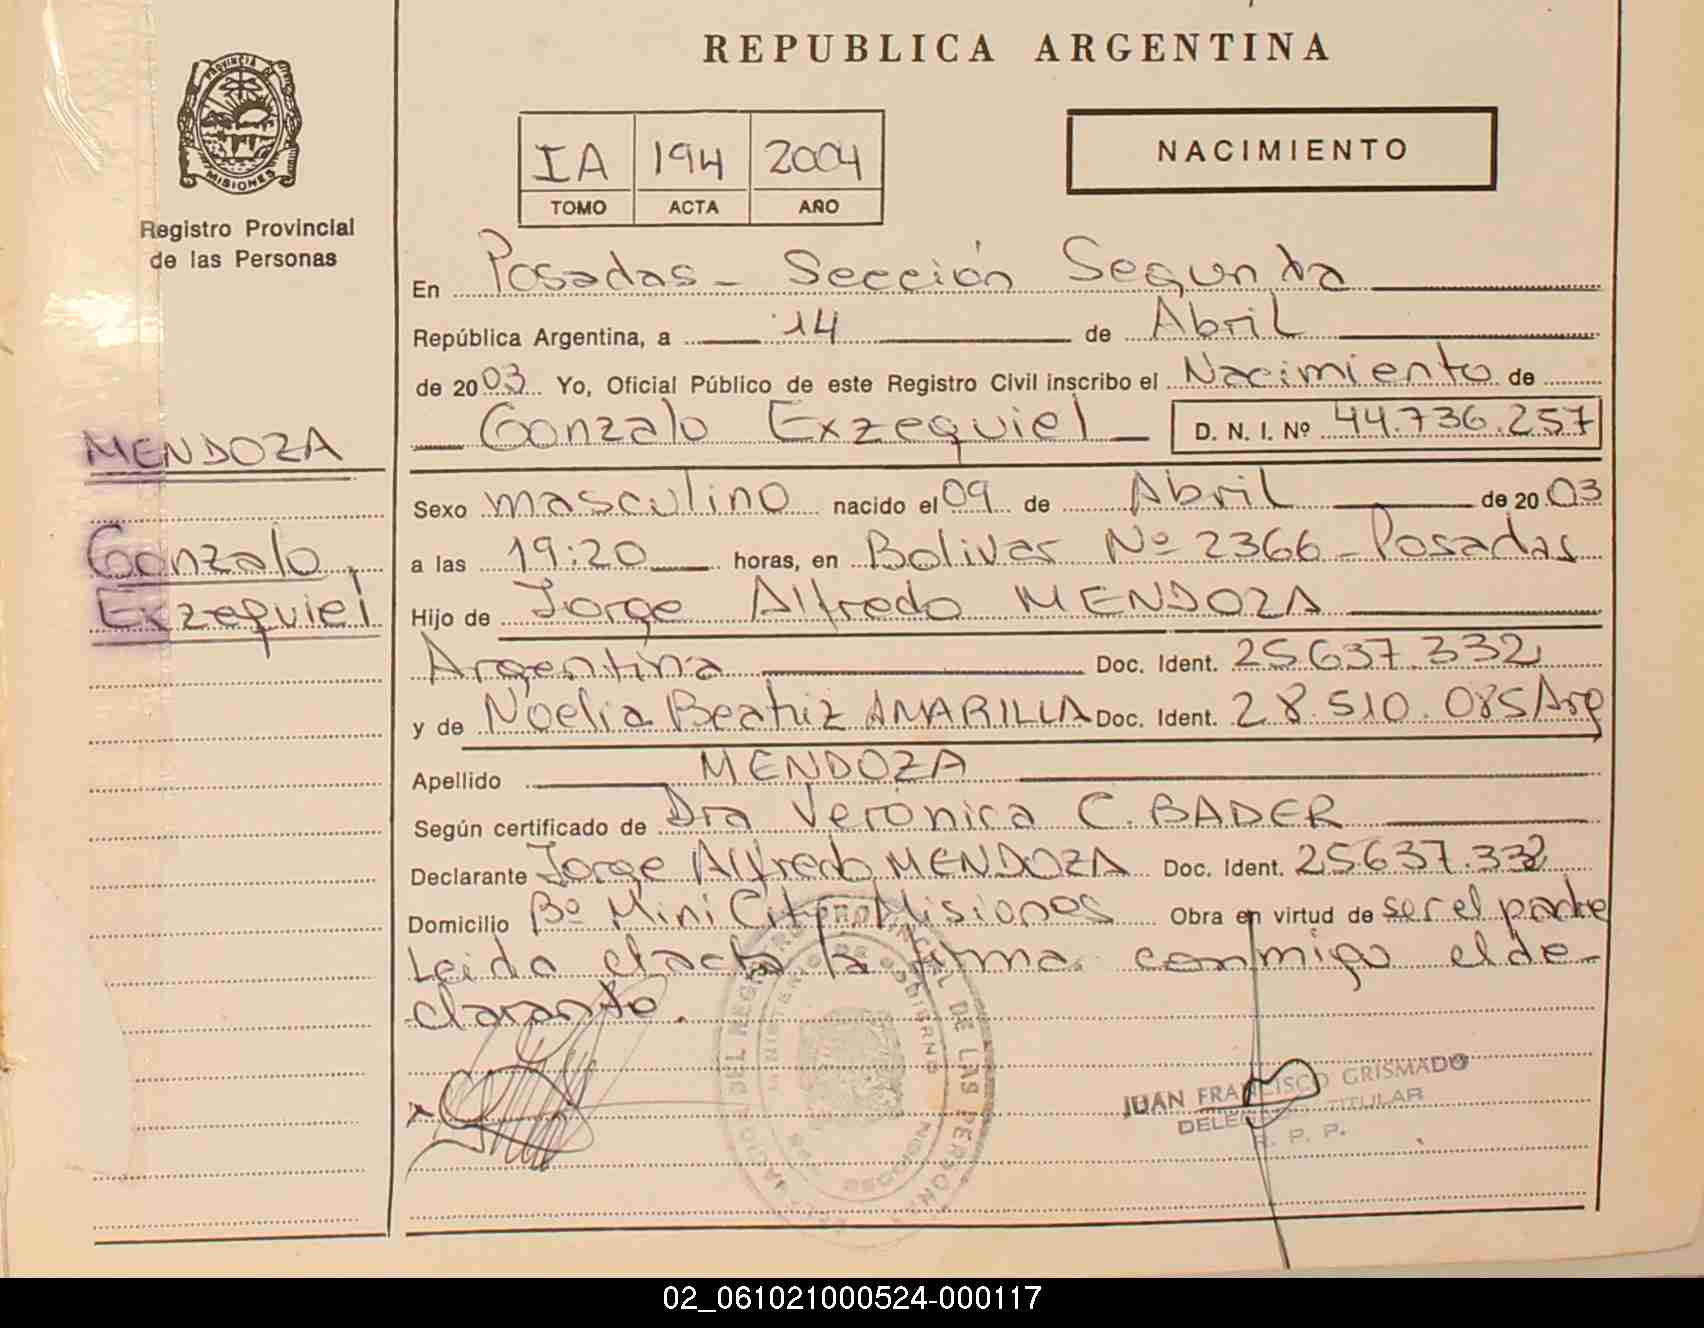 REPUBLICA ARGENTINA
PROVINCIA DE
MISIONES
Registro Provincial
de las Personas
IA 194 2004
TOMO ACTA AÑO
NACIMIENTO
En Posadas - Sección Segunda
República Argentina, a 14 de Abril
de 2003 Yo, Oficial Público de este Registro Civil inscribo el Nacimiento de
Gonzalo Exzequiel D. N. I. Nº 44.736.257
MENDOZA
Gonzalo,
Exzequiel
Sexo masculino nacido el 09 de Abril de 2003
a las 19:20 horas, en Bolivar Nº 2366 - Posadas
Hijo de Jorge Alfredo MENDOZA
Argentina Doc. Ident. 25637.332
y de Noelia Beatriz AMARILLA Doc. Ident. 28.510.085 Arg
Apellido MENDOZA
Según certificado de Dra Verónica C. BADER
Declarante Jorge Alfredo MENDOZA Doc. Ident. 25.637.332
Domicilio Bº Mini City Misiones Obra en virtud de ser el padre
Leida el acta la firma conmigo el de-
clarante.
REGISTRO PROVINCIAL DE LAS PERSONAS
MINISTERIO DE GOBIERNO
MISIONES
JUAN FRANCISCO GRISMADO
DELEGADO TITULAR
R. P. P.
02_061021000524-000117